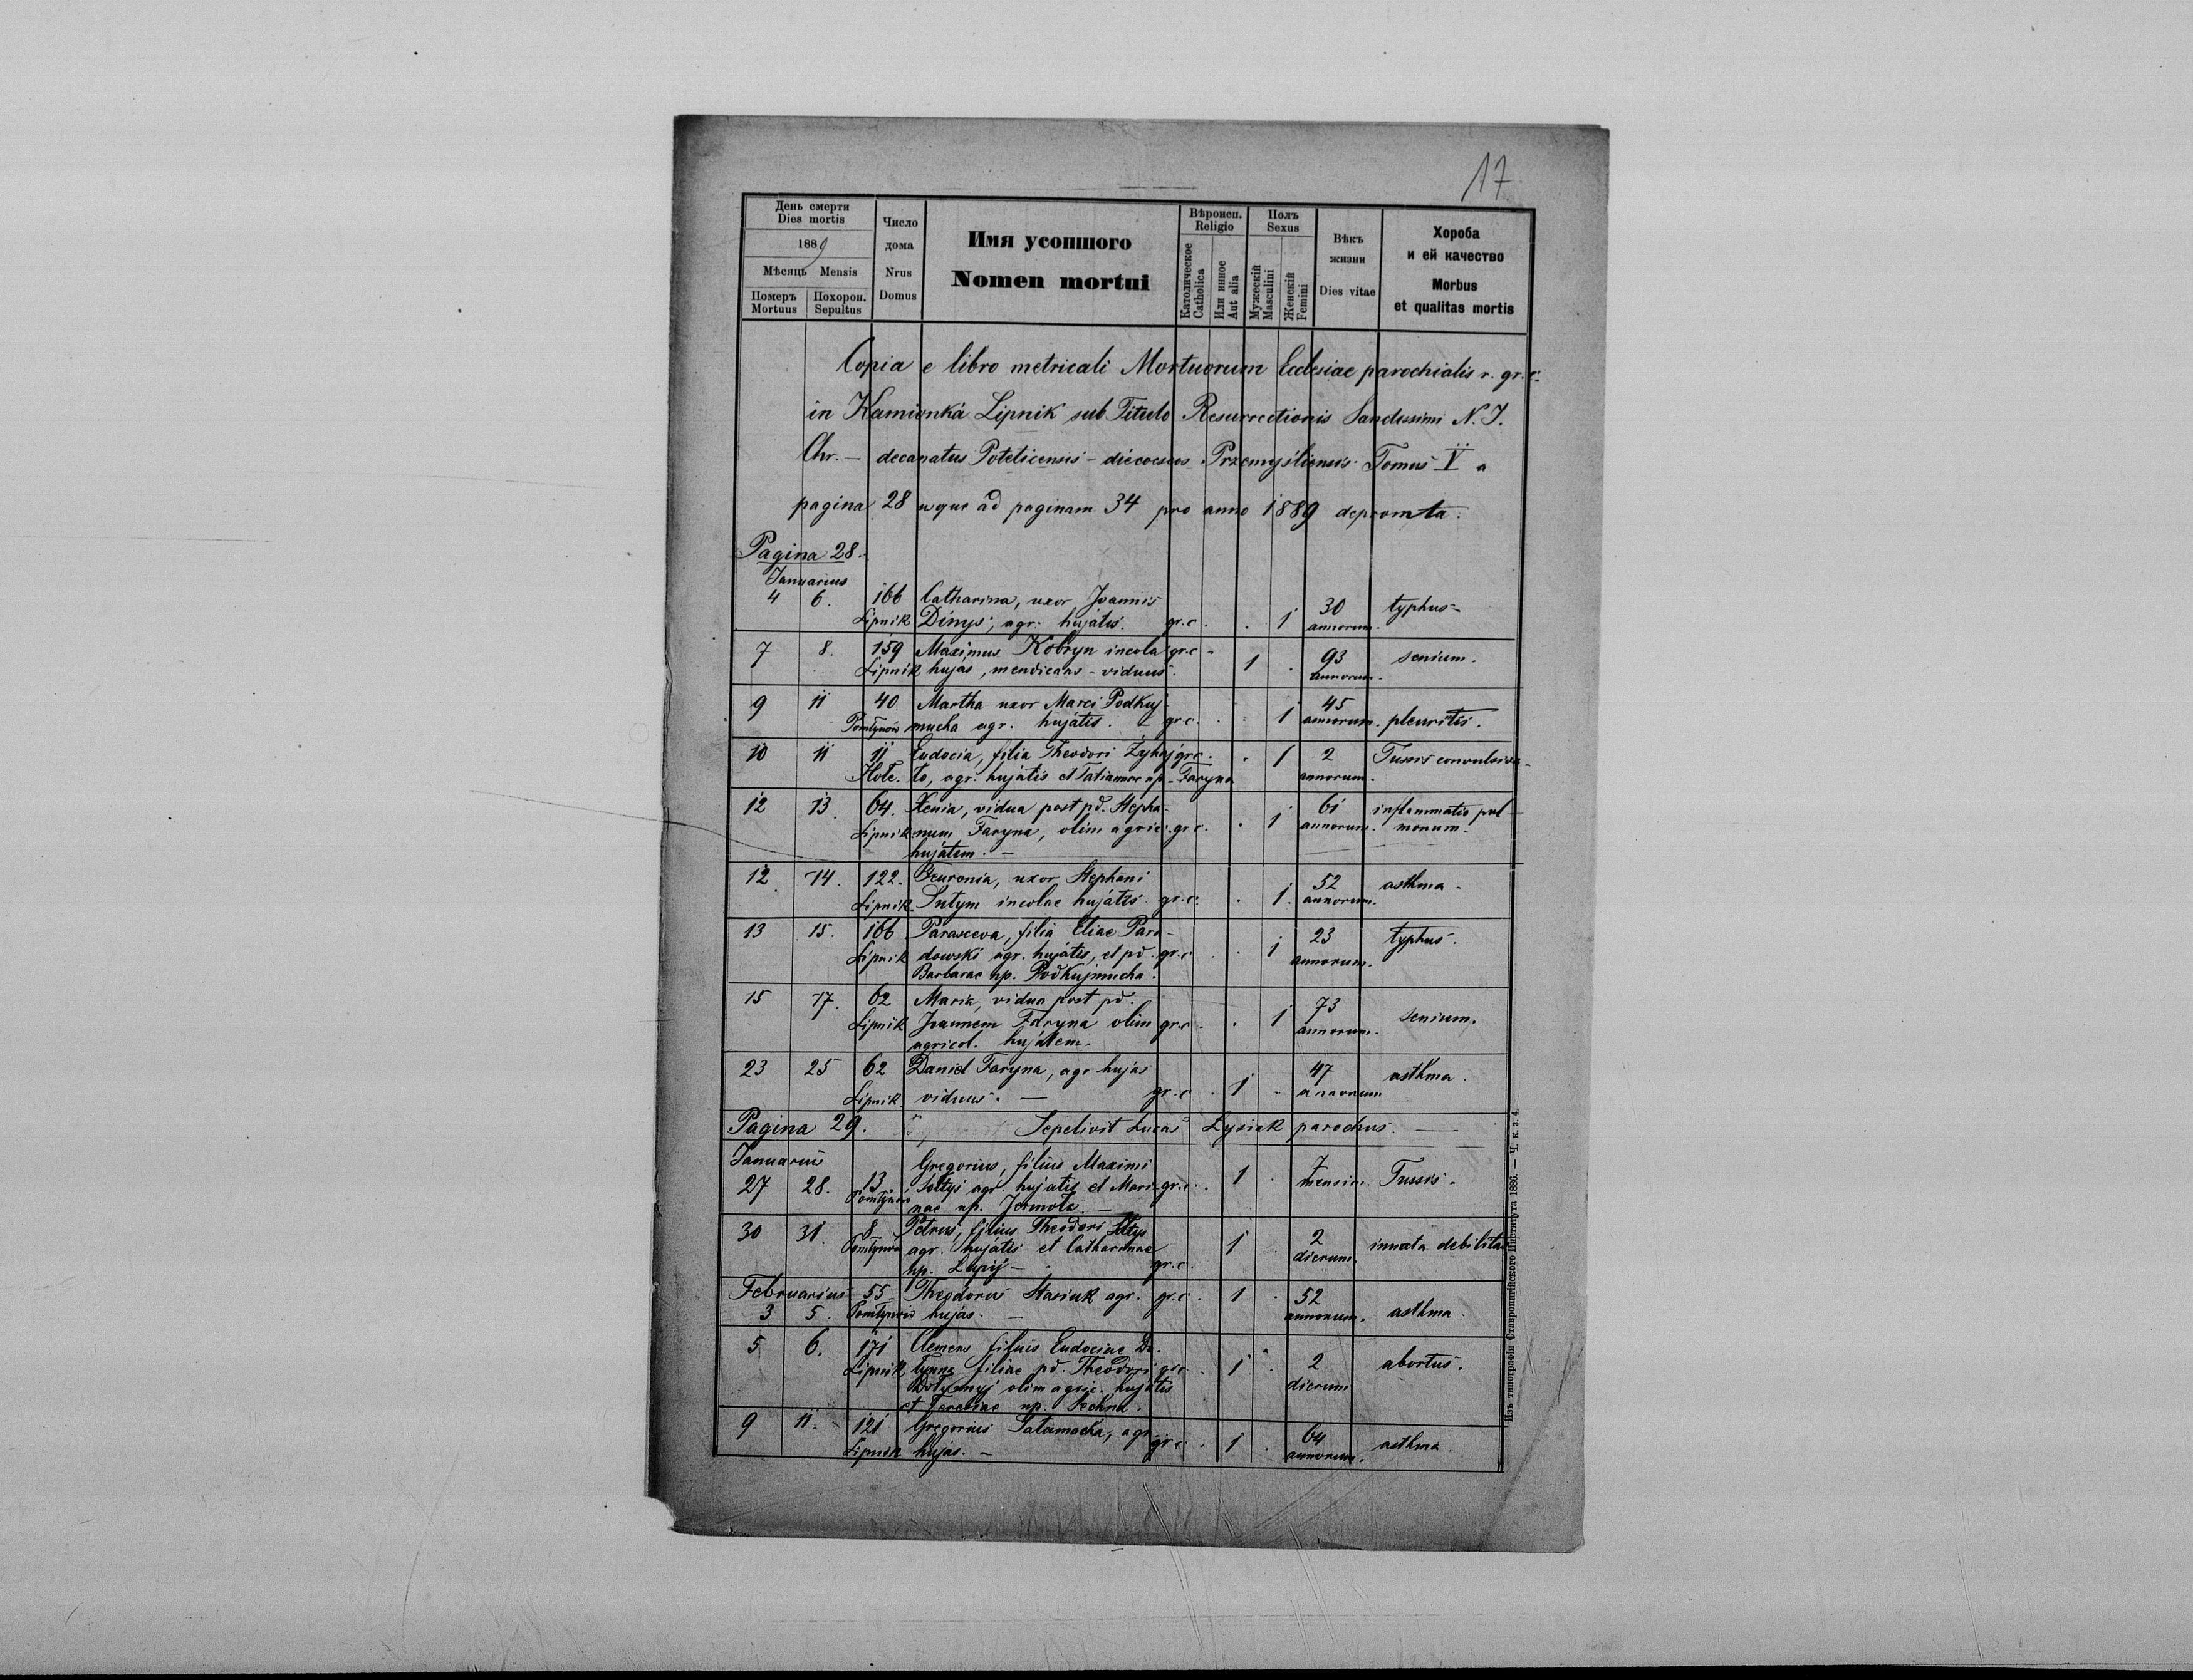 17
День смерти
Dies mortis
1889
Мѣсяць Mensis
Померъ Похорон.
Mortuus Sepultus
Число
дома
Nrus
Domus
Имя усопшого
Nomen mortui
Вѣроисп.
Religio
Католическое
Catholica
Или инное
Aut alia
Полъ
Sexus
Мужескій
Masculini
Женскій
Femini
Вѣкъ
жизни
Dies vitae
Хороба
и ей качество
Morbus
et qualitas mortis
Copia e libro metricali Mortuorum Ecclesiae parochialis r. gr. c.
in Kamionká Lipnik sub Titulo Resurrectionis Sanctissimi N. J.
Chr. – decanatus Poteliciensis – dioeceseos Przemyśliensis Tomus V a
pagina 28 usque ad paginam 34 pro anno 1889 depromta.
Pagina 28.
Januarius
4 6. 166 Catharina, uxor Joannis 30 typhus-
Lipnik Dinys, agr. hujátis. gr. c. . 1 annorum.
7 8. 159 Maximus Kobryn incola gr. c - 1 . 93 senium.
Lipnik hujás, mendicans - viduus. annorum.
9 11 40 Martha uxor Marci Podkuj- 45
mucha agr. hujátis. gr. c. . 1 annorum. pleuritis.
10 11 11 Eudocia, filia Theodori gr. c. . 1 2 Tussis convulsiva
Hole. to, agr. hujátis et Tatiannae np. Faryna annorum.
12 13 64. Xenia, vidua post pd. Stepha- 61 inflammatio pul
Lipnik num Faryna, olim agric. gr. c. . 1 annorum. monum.
hujátem. -
12 14. 122. Feuronia, uxor Stephani 52 asthma -
Lipnik incolae hujátis gr. c. . 1. annorum.
13 15. 166 Parasceva, filia Eliae Para- 23 typhus.
Lipnik dowski agr. hujátis, et pd. gr. c . 1 annorum.
Barbarae np. Podkujmucha.
15 17. 62 Maria, vidua post pd. 73
Lipnik Joannem Faryna olim gr. c . . 1 annorum. senium.
agricol. hujátem.
23 25 62 Daniel Faryna, agr hujas 47 asthma.
Lipnik viduus. - gr. c . 1 - annorum
Pagina 29. Sepelivit Lucas Łysiak parochus. —
Januarius Gregorius, filius Maximi 7
27 28. 13 Sołtys agr. hujatis et Mari- gr. c. . 1 . mensium Tussis.
nae np. Jarmola -
30 31. 8 Petrus, filius Theodori Sołtys 2
agr. hujátis et Catharinae 1 . dierum. innata debilitas
np. - gr. c.
Februarius 55 Theodorus Stasiuk agr. gr. c. 1 . 52
3 5. hujás. - annorum. asthma.
5 6. 171 Clemens filius Eudociae
Lipnik filiae pd. Theodori gr. c . 1 . 2 abortus.
olim agric. hujátis dierum
et np.
9 11. 121 Gregorius agr. gr. c. . 1 . 64 asthma
Lipnik hujás. - annorum.
Изъ типографіи Ставропигійского Института 1886. — Ч. к. з. 4.